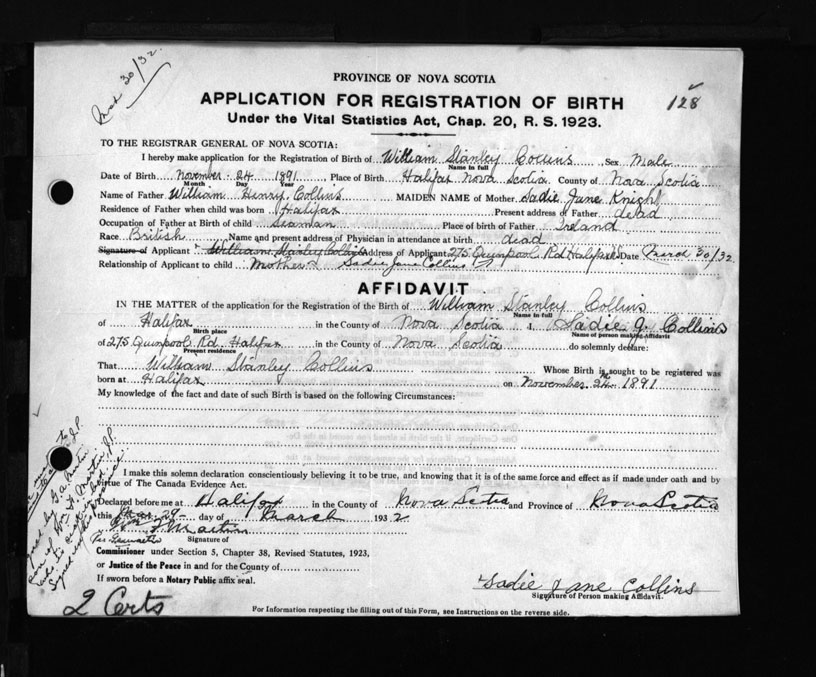 March 30/32.
PROVINCE OF NOVA SCOTIA
APPLICATION FOR REGISTRATION OF BIRTH
128
Under the Vital Statistics Act, Chap. 20, R. S. 1923.
TO THE REGISTRAR GENERAL OF NOVA SCOTIA:
I hereby make application for the Registration of Birth of William Stanley Collins Sex Male
Name in full
Date of Birth November 24 1891 Place of Birth Halifax Nova Scotia County of Nova Scotia
Month Day Year
Name of Father William Henry Collins MAIDEN NAME of Mother Sadie Jane Knight
Residence of Father when child was born Halifax Present address of Father dead
Occupation of Father at Birth of child Seaman Place of birth of Father Ireland
Race British Name and present address of Physician in attendance at birth dead
Signature of Applicant William Stanley Collins Address of Applicant 275 Quinpool Rd Halifax Date March 30/32
Relationship of Applicant to child Mother Sadie Jane Collins
AFFIDAVIT
IN THE MATTER of the application for the Registration of the Birth of William Stanley Collins
Name in full
of Halifax in the County of Nova Scotia I, Sadie J. Collins
Birth place Name of person making Affidavit
of 275 Quinpool Rd. Halifax in the County of Nova Scotia do solemnly declare:
Present residence
That William Stanley Collins Whose Birth is sought to be registered was
born at Halifax on November 24 1891
My knowledge of the fact and date of such Birth is based on the following Circumstances:
I make this solemn declaration conscientiously believing it to be true, and knowing that it is of the same force and effect as if made under oath and by
virtue of The Canada Evidence Act.
Declared before me at Halifax in the County of Nova Scotia and Province of Nova Scotia
this 29 day of March 1932
Martin
Signature of
Commissioner under Section 5, Chapter 38, Revised Statutes, 1923,
or Justice of the Peace in and for the County of
If sworn before a Notary Public affix seal.
Sadie Jane Collins
Signature of Person making Affidavit.
2 Certs
For Information respecting the filling out of this Form, see Instructions on the reverse side.